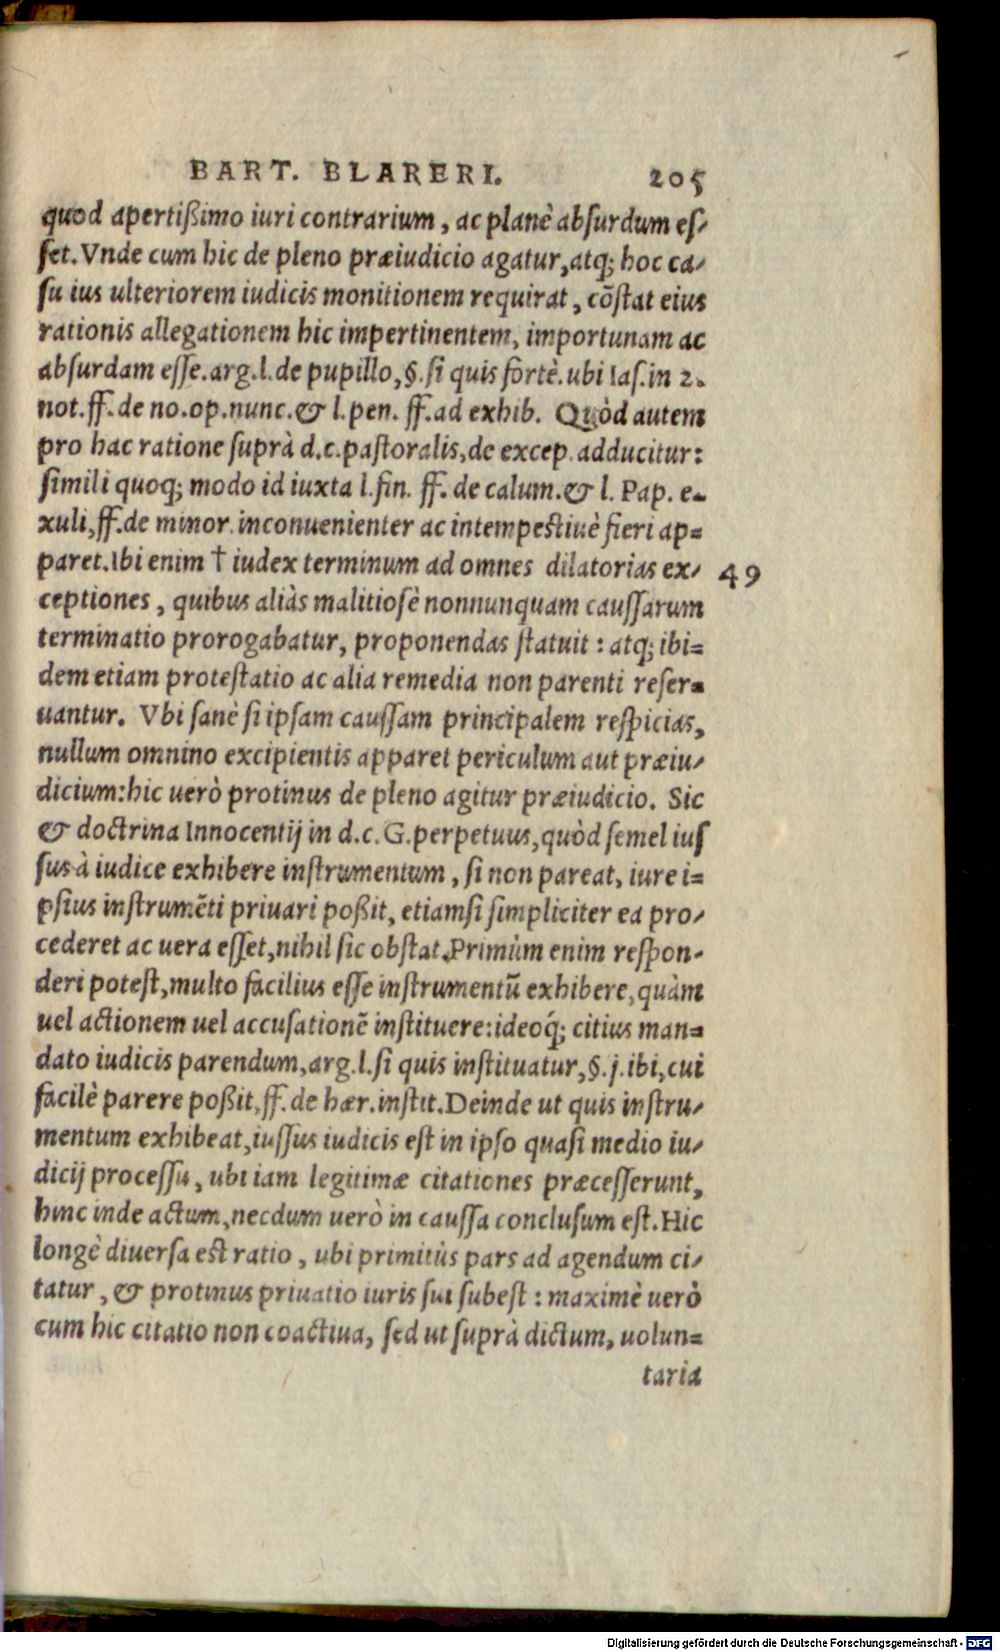 BART. BLARERI. 205
quod apertißimo iuri contrarium, ac planè absurdum es-
set. Vnde cum hic de pleno præiudicio agatur, atq; hoc ca-
su ius ulteriorem iudicis monitionem requirat, cõstat eius
rationis allegationem hic impertinentem, importunam ac
absurdam esse. arg. l. de pupillo, §. si quis fortè. ubi Ias. in 2.
not. ff. de no. op. nunc. & l. pen. ff. ad exhib. Quòd autem
pro hac ratione suprà d. c. pastoralis, de excep. adducitur:
simili quoq; modo id iuxta l. fin. ff. de calum. & l. Pap. e-
xuli, ff. de minor. inconuenienter ac intempestiuè fieri ap=
paret. Ibi enim † iudex terminum ad omnes dilatorias ex- 49
ceptiones, quibus aliàs malitiosè nonnunquam caussarum
terminatio prorogabatur, proponendas statuit: atq; ibi=
dem etiam protestatio ac alia remedia non parenti reser=
uantur. Vbi sanè si ipsam caussam principalem respicias,
nullum omnino excipientis apparet periculum aut præiu-
dicium: hic uerò protinus de pleno agitur præiudicio. Sic
& doctrina Innocentij in d. c. G. perpetuus, quòd semel ius
sus à iudice exhibere instrumentum, si non pareat, iure i=
psius instrumẽti priuari poßit, etiamsi simpliciter ea pro-
cederet ac uera esset, nihil sic obstat. Primùm enim respon-
deri potest, multo facilius esse instrumentũ exhibere, quàm
uel actionem uel accusationẽ instituere: ideoq́; citius man=
dato iudicis parendum, arg. l. si quis instituatur, §. j. ibi, cui
facilè parere poßit, ff. de hær. instit. Deinde ut quis instru-
mentum exhibeat, iussus iudicis est in ipso quasi medio iu-
dicij processu, ubi iam legitimæ citationes præcesserunt,
hinc inde actum, necdum uerò in caussa conclusum est. Hic
longè diuersa est ratio, ubi primitùs pars ad agendum ci-
tatur, & protinus priuatio iuris sui subest: maximè uerò
cum hic citatio non coactiua, sed ut suprà dictum, uolun=
taria
Digitalisierung gefördert durch die Deutsche Forschungsgemeinschaft - DFG